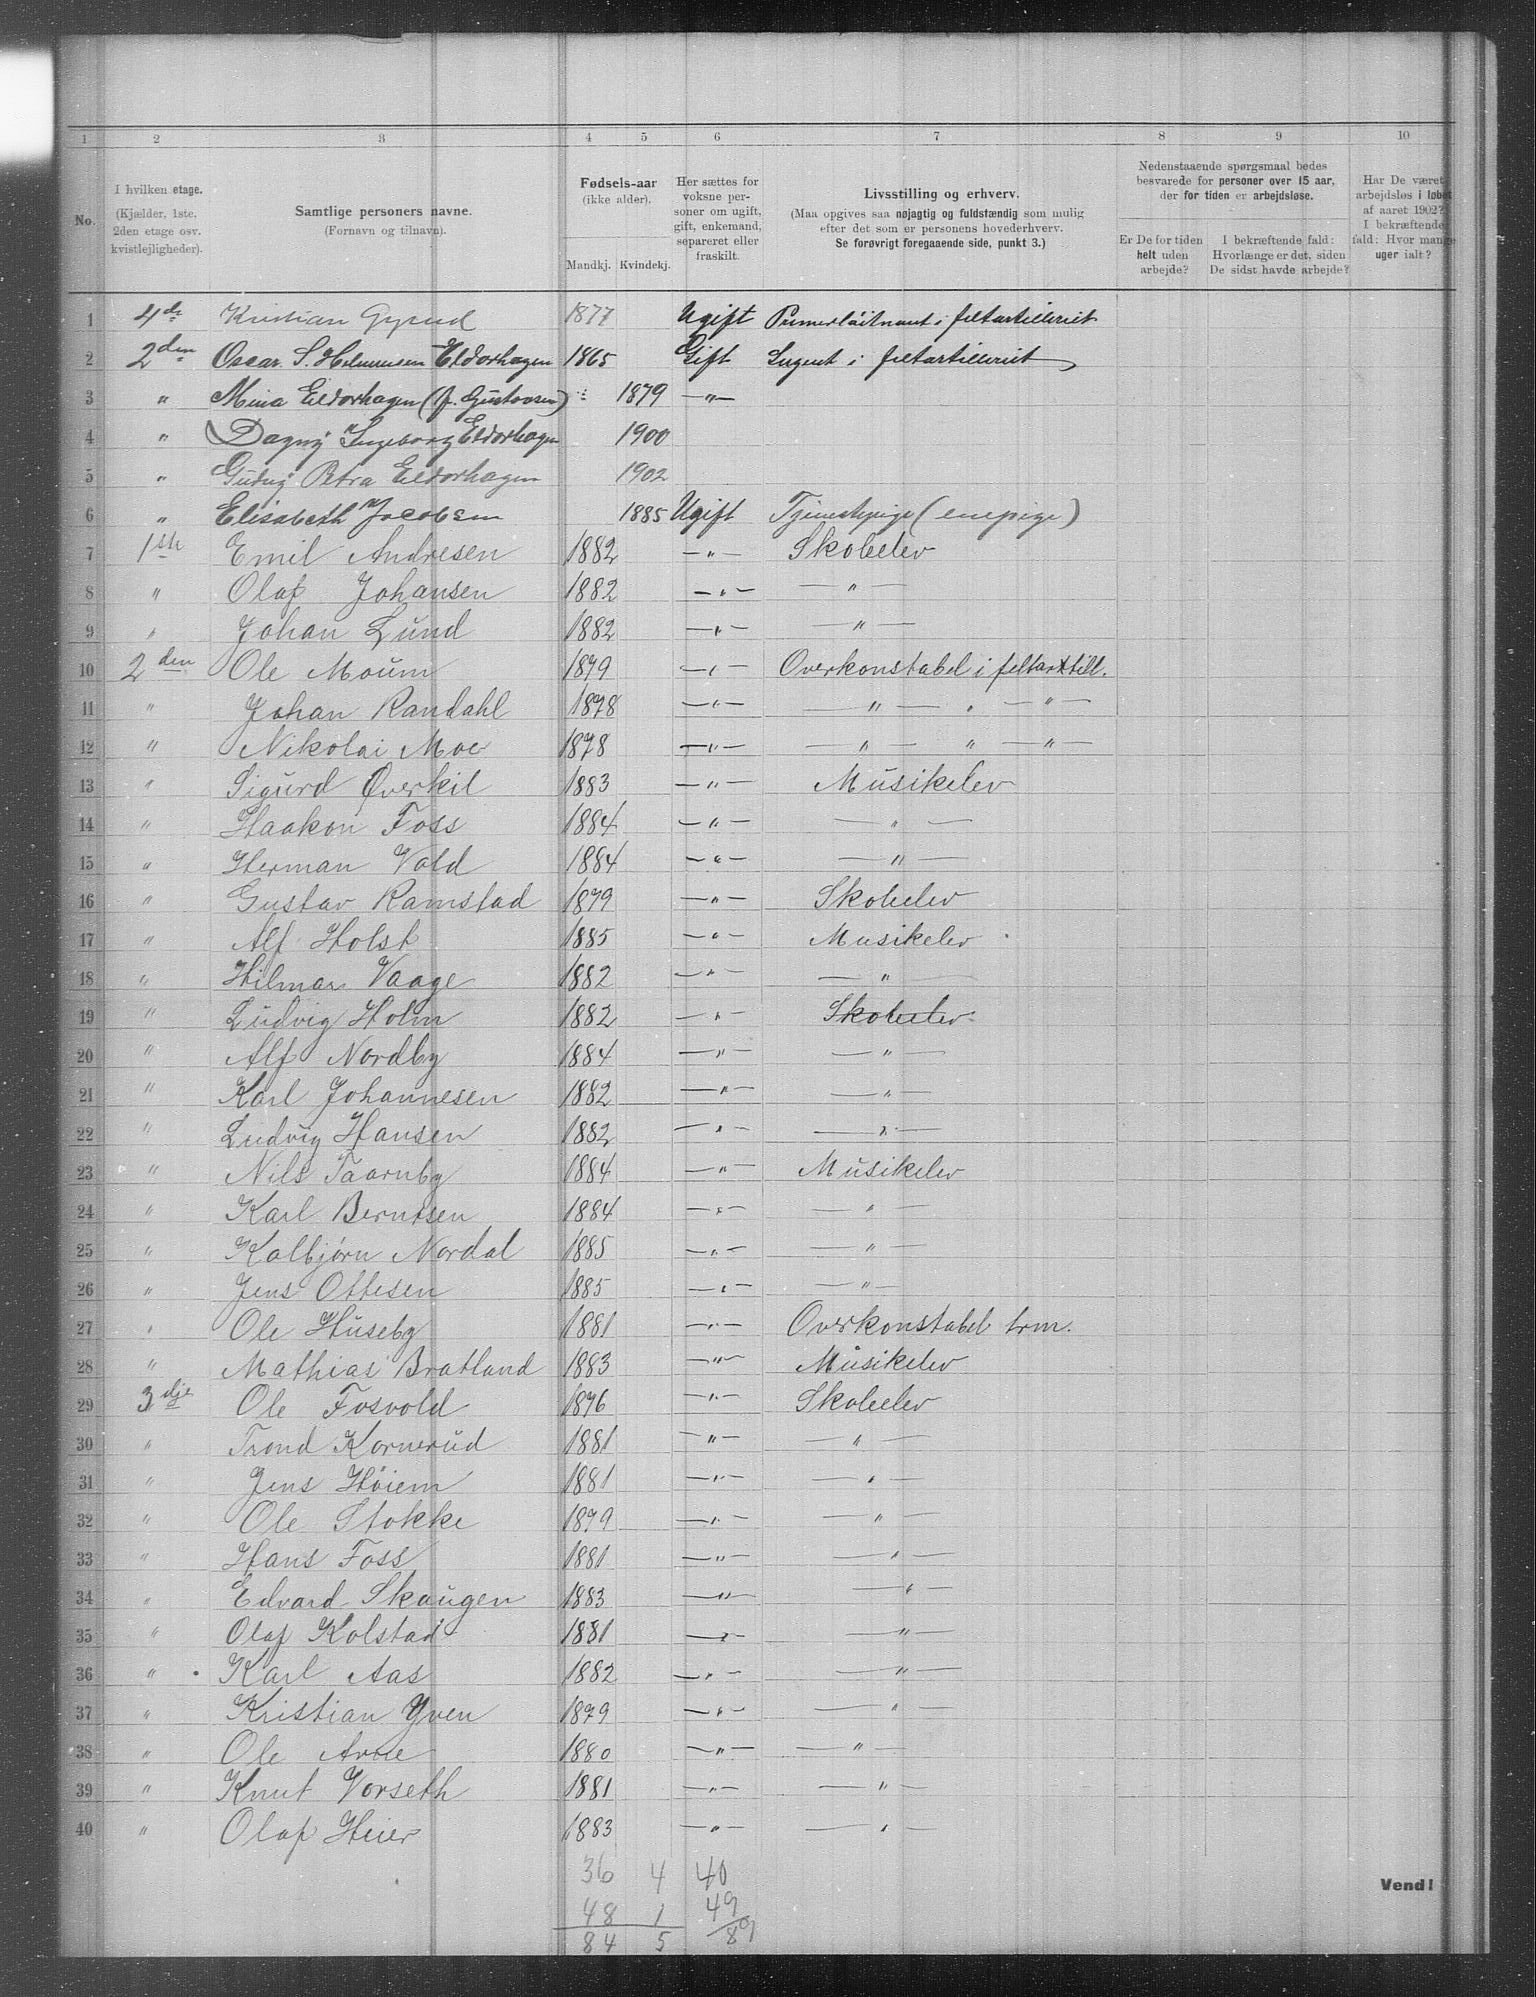 1 2 3 4 5 6 7 8 9 10
No.
I hvilken etage.
(Kjælder, 1ste.
2den etage osv.
kvistlejligheder).
Samtlige personers navne.
(Fornavn og tilnavn).
Fødsels-aar
(ikke alder).
Mandkj. Kvindekj.
Her sættes for
voksne per-
soner om ugift,
gift, enkemand,
separeret eller
fraskilt.
Livsstilling og erhverv.
(Maa opgives saa nøjagtig og fuldstændig som mulig
efter det som er personens hovederhverv.
Se forøvrigt foregaaende side, punkt 3.)
Nedenstaaende spørgsmaal bedes
besvarede for personer over 15 aar,
der for tiden er arbejdsløse.
Er De for tiden
helt uden
arbejde?
I bekræftende fald:
Hvorlænge er det, siden
De sidst havde arbejde?
Har De været
arbejdsløs i løbet
af aaret 1902?
I bekræftende
fald: Hvor mange
uger ialt?
1 4de Kristian 1877 Ugift Premierløitnant i feltartilleriet
2 2den Oscar S. Eldorhagen 1865 Gift Sergent i feltartilleriet
3 " Mina Eldorhagen (f. Gustavsen) 1879 — " —
4 " Dagny Ingeborg Eldorhagen 1900
5 " Gudny Petra Eldorhagen 1902
6 " Elisabeth Jacobsen 1885 Ugift Tjenestepige (enepige)
7 1ste Emil Andresen 1882 — " — Skoleelev
8 " Olaf Johansen 1882 — " — — " —
9 " Johan Lund 1882 — " — — " —
10 2den Ole Moum 1879 — " — Overkonstabel i feltartill.
11 " Johan Randahl 1878 — " — — " — " — " —
12 " Nikolai Moe 1878 — " — — " — " — " —
13 " Sigurd Øverkil 1883 — " — Musikelev
14 " Haakon Foss 1884 — " — — " —
15 " Herman Vold 1884 — " — — " —
16 " Gustav Ramstad 1879 — " — Skoleelev
17 " Alf Holst 1885 — " — Musikelev
18 " Hilmar Vaage 1882 — " — — " —
19 " Ludvig Holm 1882 — " — Skoleelev
20 " Alf Nordby 1884 — " — — " —
21 " Karl Johannesen 1882 — " — — " —
22 " Ludvig Hansen 1882 — " — — " —
23 " Nils Taarnby 1884 — " — Musikelev
24 " Karl Berntsen 1884 — " — — " —
25 " Kolbjørn Nordal 1885 — " — — " —
26 " Jens Ottesen 1885 — " — — " —
27 " Ole Huseby 1881 — " — Overkonstabel trm.
28 " Mathias Bratland 1883 — " — Musikelev
29 3dje Ole Fosvold 1876 — " — Skoleelev
30 " Trond Kornerud 1881 — " — — " —
31 " Jens Höiem 1881 — " — — " —
32 " Ole Stokke 1879 — " — — " —
33 " Hans Foss 1881 — " — — " —
34 " Edvard Skaugen 1883 — " — — " —
35 " Olaf Kolstad 1881 — " — — " —
36 " Karl Aas 1882 — " — — " —
37 " Kristian Yven 1879 — " — — " —
38 " Ole 1880 — " — — " —
39 " Knut Vorseth 1881 — " — — " —
40 " Olaf Heier 1883 — " — — " —
36 4 40
48 1 49
84 5 89
Vend!